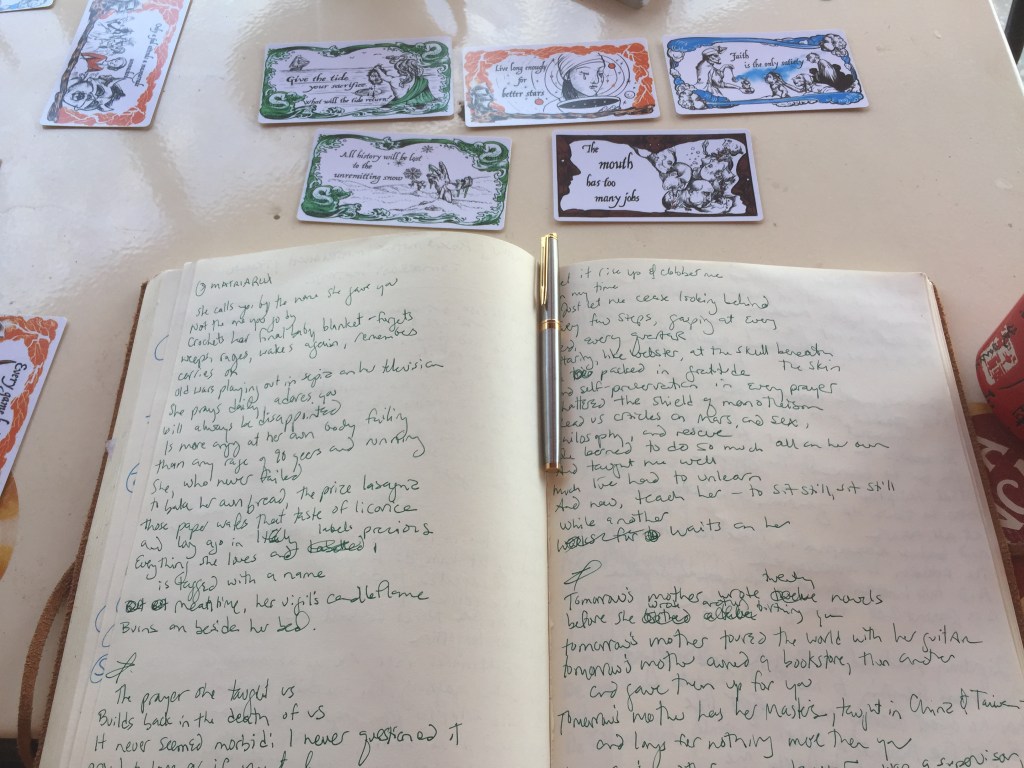 Give the tide
your sacrifice.
What will the tide return?
Live long enough
for
better stars
Faith
is the only
All history will be lost
to the
unremitting snow
The
mouth
has too
many jobs
Every game
MATRIARCH
She calls you by the name she gave you
Not the one you go by
Crochets her final baby blanket - forgets
weeps, rages, wakes again, remembers
carries on
old wars playing out in on her television
She prays daily, adores you
will always be disappointed
Is more angry at her own body failing
than any rage of 90 years and running
She, who never failed
to bake her own bread, the prize lasagna
those paper wafers that taste of licorice
and long ago in labels precious
Everything she loves and
is tagged with a name
meantime, her vigil's candleflame
Burns on beside her bed.
The prayer she taught us
Builds back in the death of us
It never seemed morbid; I never questioned it
it rise up & clobber me
in my time
Just let me cease looking behind
every few steps, gaping at every
every
staring, like Webster, at the skull beneath
the skin
packed in gratitude
self preservation in every prayer
the shield of monotheism
us cracks on Mars, and sex,
philosophy, and rescue
learned to do so much all on her own
And taught me well
much I've had to unlearn
And now, teach her - to sit still, sit still
while another
waits on her
Tomorrow's mother wrote twenty novels
before she birthing you
tomorrow's mother toured the world with her guitar
tomorrow's mother owned a bookstore, then another
and gave them up for you
Tomorrow's mother has her Masters, taught in China & Taiwan
and longs for nothing more than you
was a supervisor